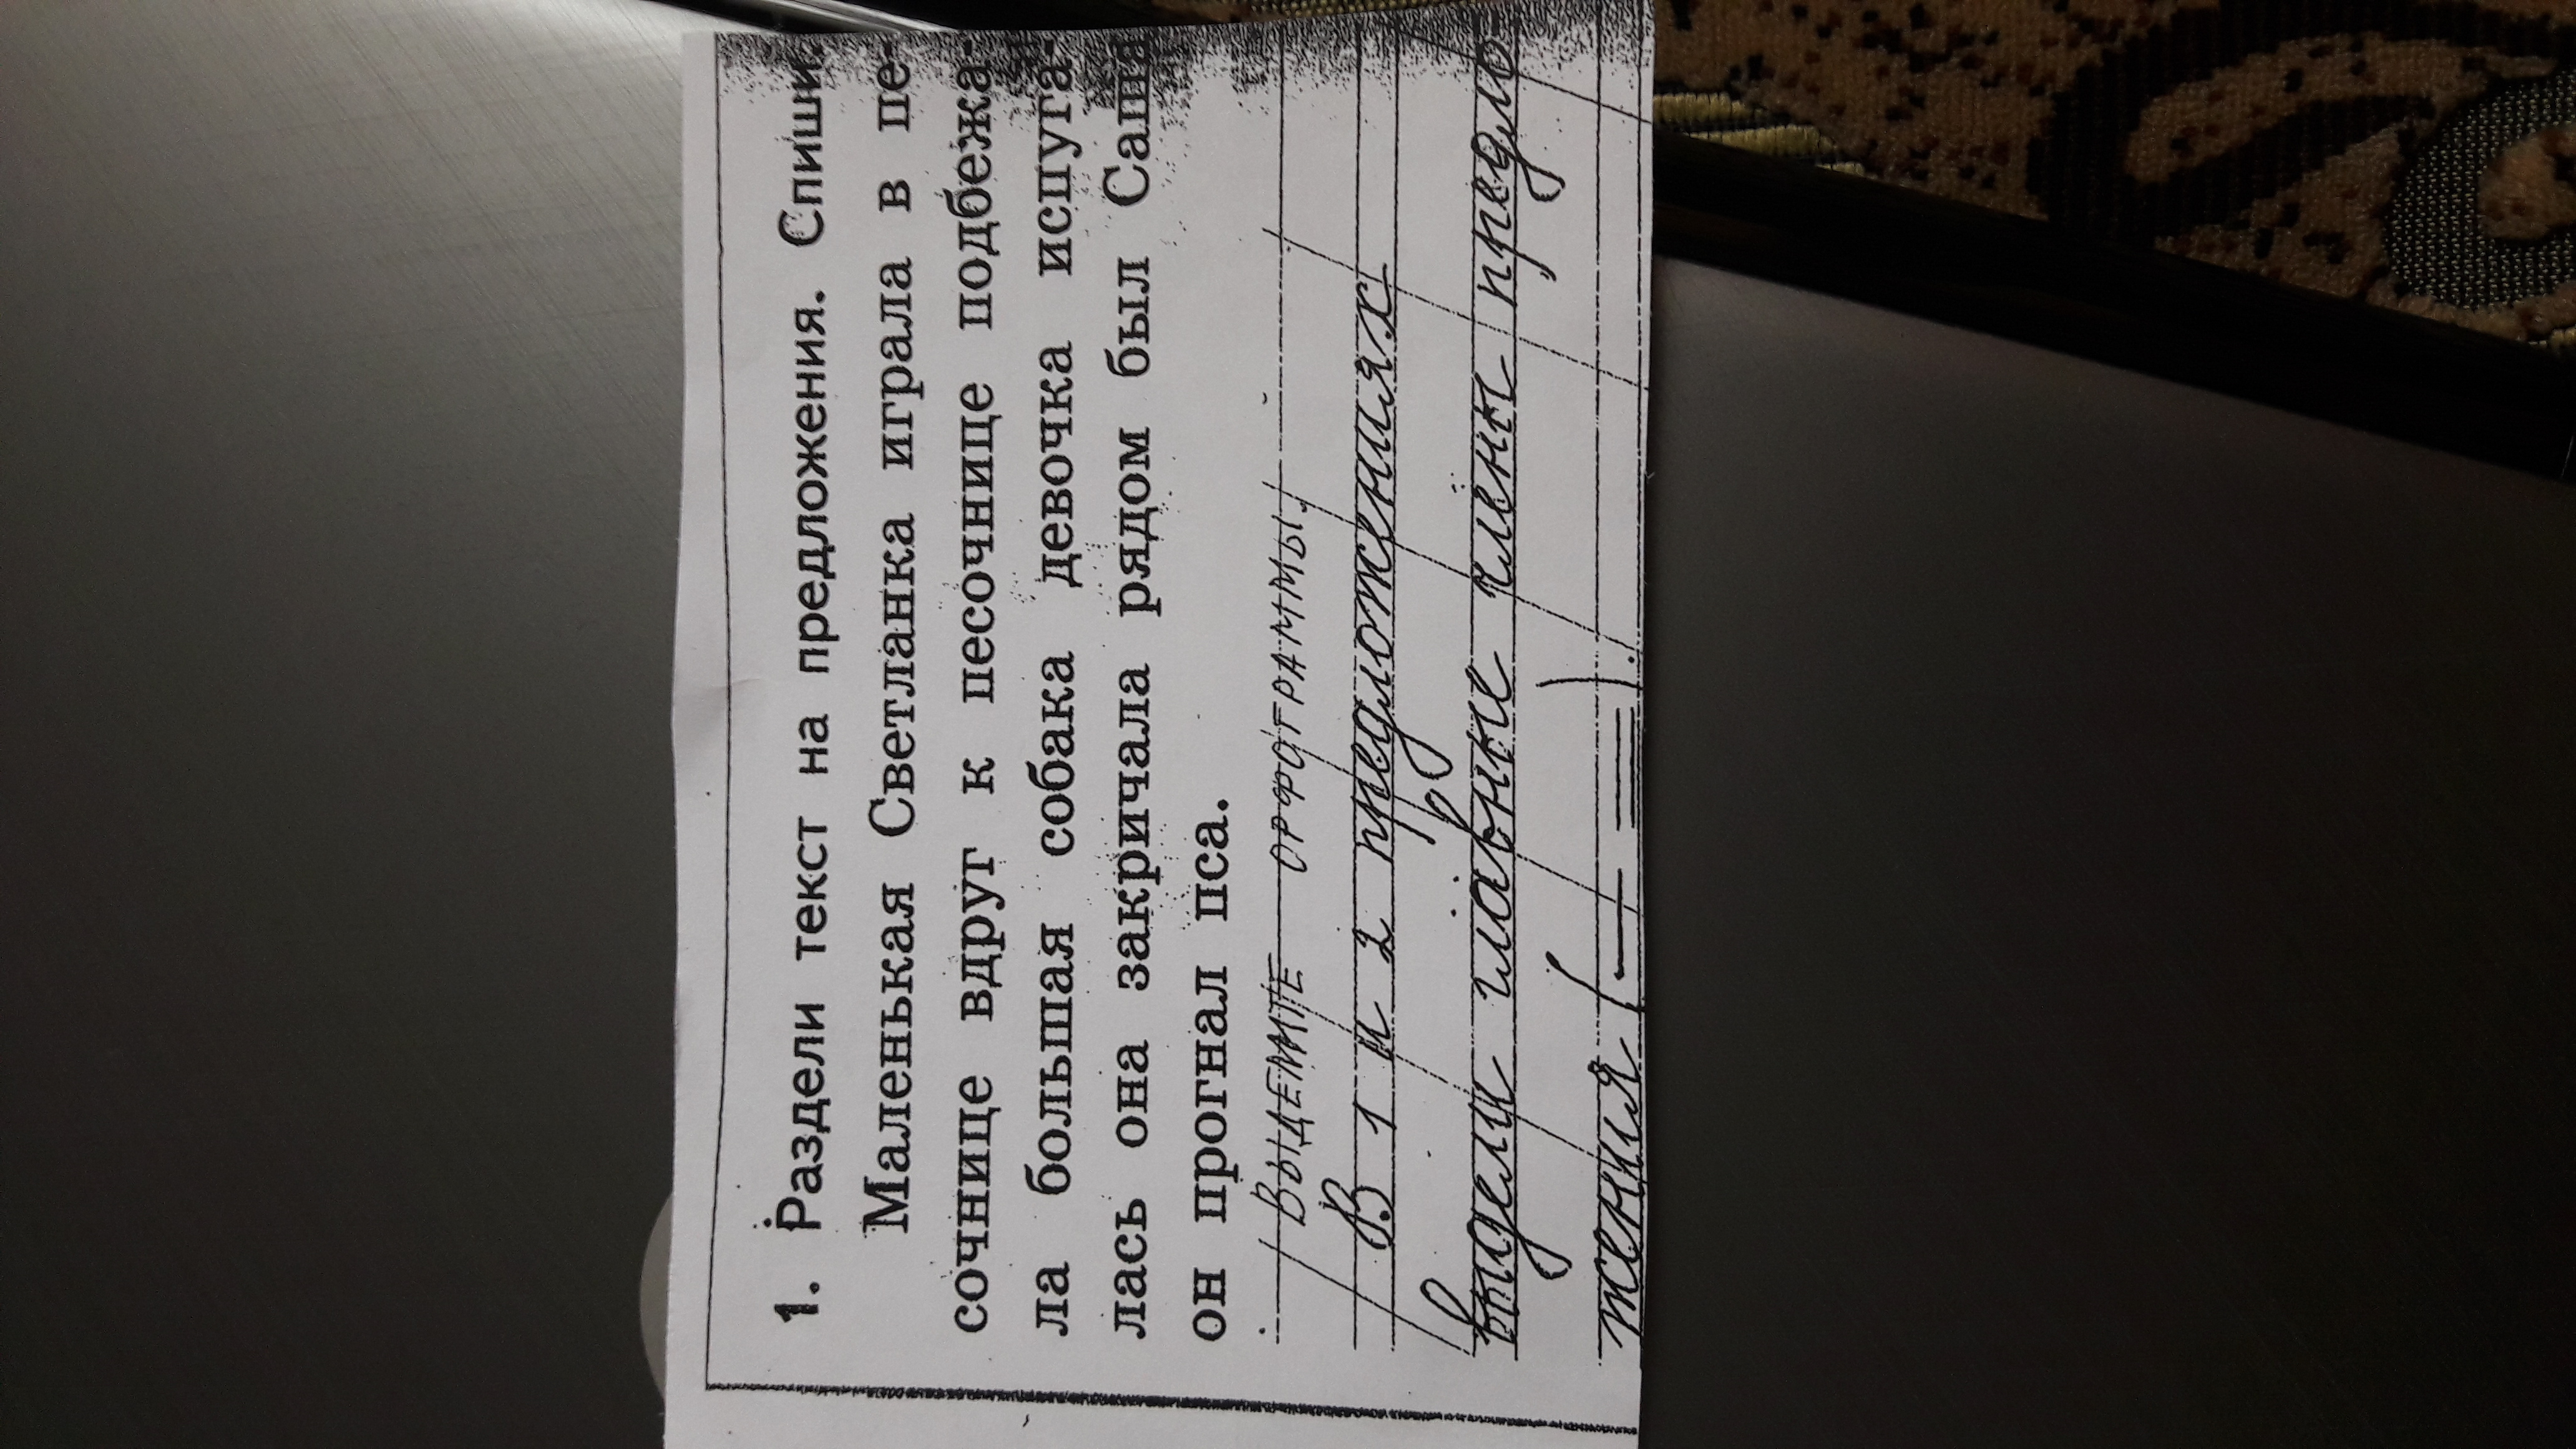 1. Раздели текст на предложения. Спиши.
Маленькая Светланка играла в пе-
сочнице вдруг к песочнице подбежа-
ла большая собака девочка испуга-
лась она закричала рядом был Саша
он прогнал пса.
ВЫДЕЛИТЕ ОРФОГРАММЫ.
В 1 и 2 предложениях
выдели главные члены предло-
жения ( — = ).